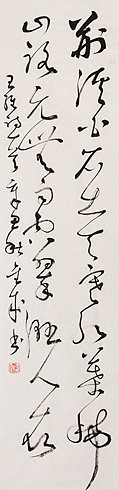 荊溪白石出天寒紅葉稀
山路元無雨空翠濕人衣
王維詩 書